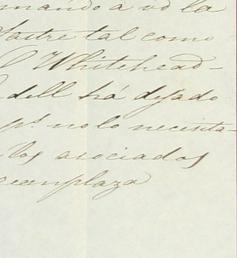 mando a vd la
tal como
Whitehead
dell há dejado
pr. no lo necesita-
los asociados
reemplaza